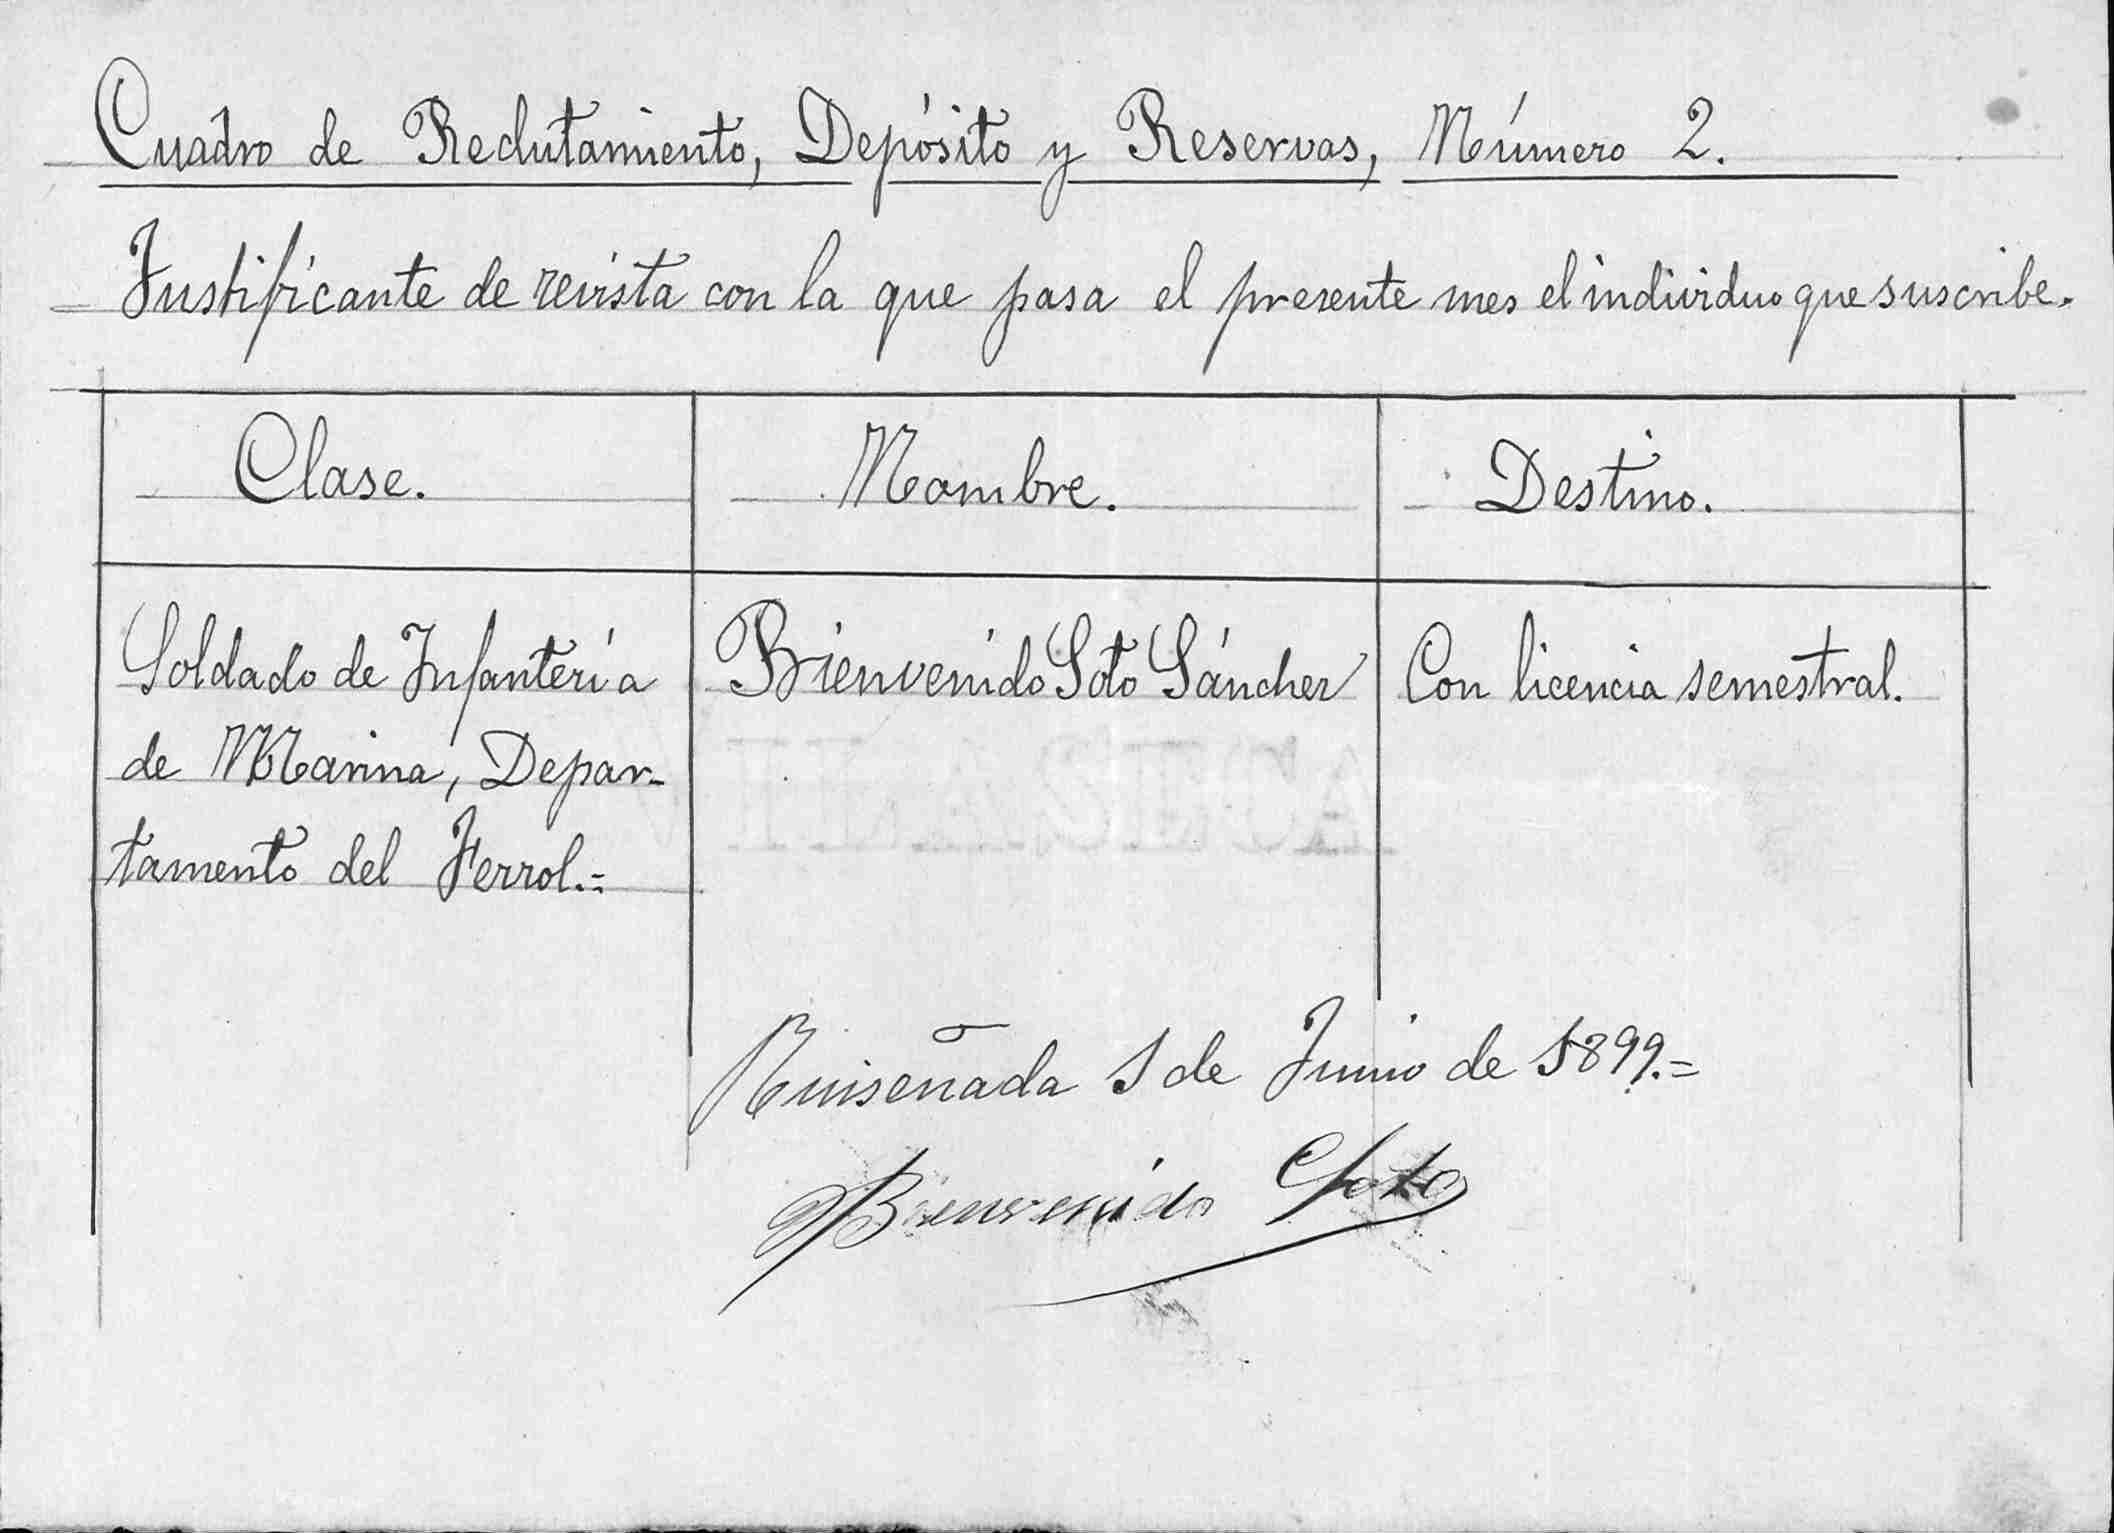 Cuadro de Reclutamiento, Depósito y Reservas, Número 2.
Justificante de revista con la que pasa el presente mes el individuo que suscribe.
Clase. Nombre. Destino.
Soldado de Infantería Bienvenido Soto Sánchez Con licencia semestral.
de Marina, Depar-
tamento del Ferrol.=
Ruiseñada 1 de Junio de 1899.=
Bienvenido Soto